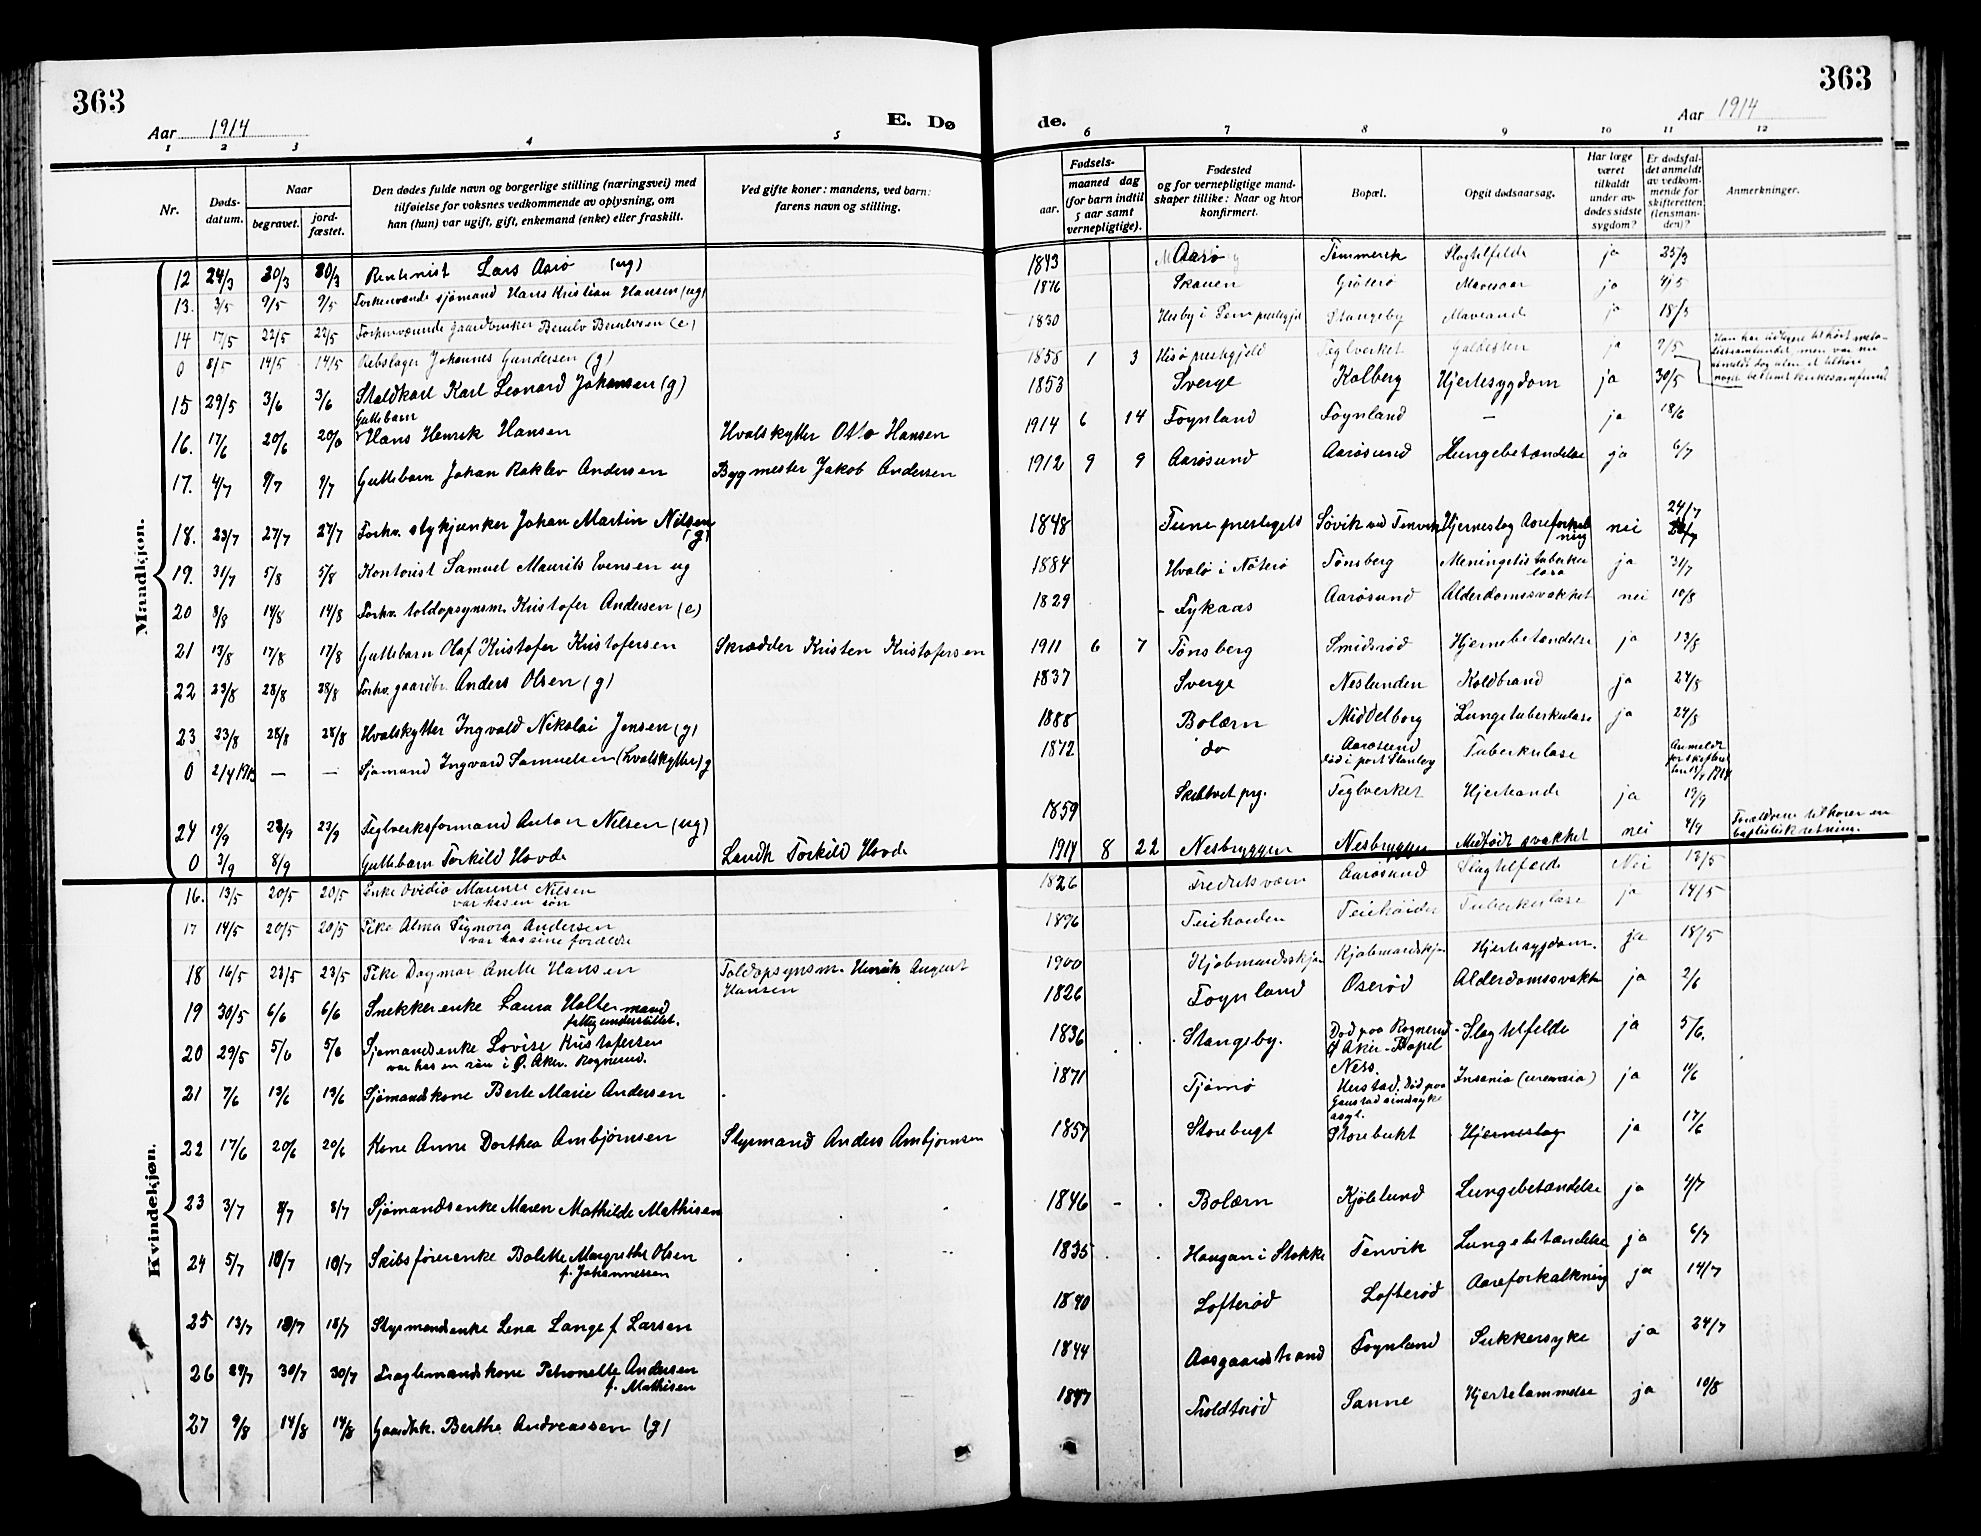 363
363
Aar 1914
E. Dø
de.
Aar 1914
1 2 3 4 5
6 7 8 9 10 11 12
Nr.
Døds-
datum.
Naar
begravet.
jord-
fæstet.
Den dødes fulde navn og borgerlige stilling (næringsvei) med
tilføielse for voksnes vedkommende av oplysning, om
han (hun) var ugift, gift, enkemand (enke) eller fraskilt.
Ved gifte koner: mandens, ved barn:
farens navn og stilling.
Fødsels-
aar.
maaned dag
(for barn indtil
5 aar samt
vernepligtige).
Fødested
og for vernepligtige mand-
skaper tillike: Naar og hvor
konfirmert.
Bopæl.
Opgit dødsaarsag.
Har læge
været
tilkaldt
under av-
dødes sidste
sygdom?
Er dødsfal-
det anmeldt
av vedkom-
mende for
skifteretten
(lensman-
den)?
Anmerkninger.
Mandkjøn.
12 24/3 30/3 30/3 Rentenist Lars Aarø (ug) 1843 Aarø Tømmerek Slagtilfelde ja 25/3
13. 3/5 9/5 9/5 Forhenværende sjømand Hans Kristian Hansen (ug) 1876 Skauen Gröterö ja 4/5
14 17/5 22/5 22/5 Forhenværende gaardbruker (e) 1830 Stangeby ja 18/5
0 8/5 14/5 14/5 Rebslager Johannes Gundersen (g) 1858 1 3 Hisö prestegjeld Teglverket Galdesten ja 9/5
15 29/5 3/6 3/6 Staldkarl Karl Leonard Johansen (g) 1853 Sverge Kolberg Hjertesygdom ja 30/5
Guttebarn
16. 17/6 20/6 20/6 Hans Henrik Hansen Hvalskytter Otto Hansen 1914 6 14 Föynland Föynland — ja 18/6
17. 4/7 9/7 9/7 Guttebarn Johan Raklev Andersen Bygmester Jakob Andersen 1912 9 9 Aarøsund Aarøsund Lungebetændelse ja 6/7
18. 23/7 27/7 27/7 Forhv. stykjunker Johan Martin Nilsen (g) 1848 Tune prestegeld Søvik ved Tenvik Hjerneslag Aareforkalkning nei 24/7
19. 31/7 5/8 5/8 Kontorist Samuel Maurits Evensen ug 1884 Hvalö i Nöterö Tønsberg Meningitis tuberkulosa ja 31/7
20 8/8 14/8 14/8 Forhv. toldopsynsm. Kristofer Andersen (e) 1829 Fykaas Aarøsund Alderdomssvakhet nei 10/8
21 13/8 17/8 17/8 Guttebarn Olaf Kristofer Kristofersen Skrædder Kristen Kristofersen 1911 6 7 Tönsberg Smidsrød Hjernebetændelse ja 13/8
22 23/8 28/8 28/8 Forhv. gaardbr. Anders Olsen (g) 1837 Sverge Neslunden Koldbrand ja 24/8
23 23/8 28/8 28/8 Hvalskytter Ingvald Nikolai Jensen (g) 1888 Bolærn Middelborg Lungetuberkulose ja 24/8
0 2/4 1913 — — Sjømand Ingvard Samuelsen (hvalskytter) g 1872 do Aarøsund død i port Stanley Tuberkulose Anmeldt
24 19/9 23/9 23/9 Teglverksformand Anton Nilsen (ug) 1859 Skibtvet prg. Teglverket Hjerteande ja 19/9
0 3/9 8/9 Guttebarn Torkild Hovde Landh Torkild Hovde 1914 8 22 Nesbryggen Nesbryggen Medfødt svakhet nei 4/9 Forældrene tilhører en
baptistisk retning.
Kvindekjøn.
16. 13/5 20/5 20/5 Enke Ovidia Marense Nilsen 1826 Fredriksværn Aarøsund Slagtilfelde Nei 13/5
var hos en søn
17 14/5 20/5 20/5 Pike Alma Signora Andersen 1896 Teiehöiden Teiehöiden Tuberkulose ja 14/5
var hos sine forældre
18 16/5 23/5 23/5 Pike Dagmar Anette Hansen Toldopsynsm. Henrik August
Hansen 1900 Kjøbmandsskjær Hjertesygdom. ja 18/5
19 30/5 6/6 6/6 Snekkerenke Laura Haltermand 1826 Föynland Oserød Alderdomssvakhet ja 2/6
fattigunderstöttet.
20 29/5 5/6 5/6 Sjømandsenke Lovise Kristofersen 1836 Stangeby. Død paa Rognerud Ø Aker - Bopel Ness. Slagtilfelde ja 5/6.
var hos en søn i Ø. Aker. Rognerud.
21 7/6 13/6 13/6 Sjømandskone Berte Marie Andersen 1871 Tjømø Herstad. Død paa Gaustad sindssyke asyl. Insania (uremia) ja 11/6
22 17/6 20/6 20/6 Kone Anne Dorthea Ambjørnsen Styrmand Anders Ambjørnsen 1857 Storebugt Storebukt Hjerneslag ja 17/6
23 3/7 8/7 8/7 Sjømandsenke Maren Mathilde Mathisen 1846 Bolærn Kjølelund Lungebetændelse ja 4/7
24 5/7 10/7 10/7 Skibsförerenke Bolette Margrethe Olsen 1835 Haugan i Stokke Tenvik Lungebetændelse ja 6/7
f. Johannessen
25 13/7 18/7 18/7 Styrmandsenke Lena Lange f Larsen 1840 Lofterød Lofterød Aareforkalkning ja 14/7
26 24/7 30/7 30/7 Fraglemandskone Petronelle Andersen 1844 Aasgaardstrand Föynland Sukkersyke ja 24/7
f. Mathisen
27 9/8 14/8 14/8 Gaardbk. Berthe Andreassen (g) 1847 Troldterød Sanne Hjertelammelse ja 10/8